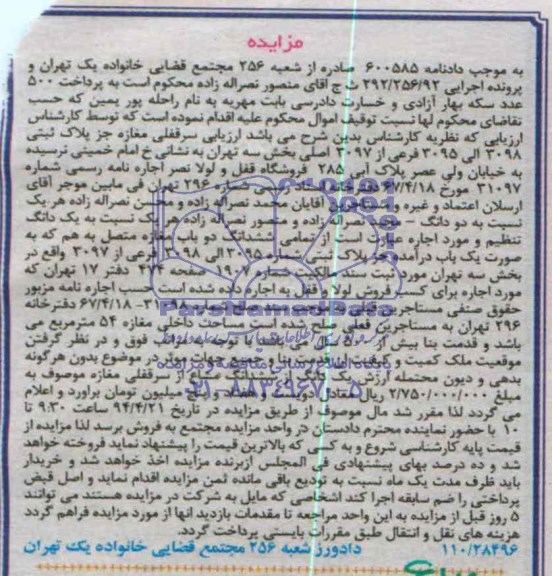 مزایده
به موجب دادنامه ۶۰۰۵۸۵ صادره از شعبه ۲۵۶ مجتمع قضایی خانواده یک تهران و
پرونده اجرایی ۲۹۲/۲۵۶/۹۲ ث ج آقای منصور نصراله زاده محکوم است به پرداخت ۵۰۰
عدد سکه بهار آزادی و خسارت دادرسی بابت مهریه به نام راحله پور یمین که حسب
تقاضای محکوم لها نسبت توقیف اموال محکوم علیه اقدام نموده است که توسط کارشناس
ارزیابی که نظریه کارشناس بدین شرح می باشد ارزیابی سرقفلی مغازه جز پلاک ثبتی
۳۰۹۸ الی ۳۰۹۵ فرعی از ۳۰۹۷ اصلی بخش سه تهران به نشانی خ امام خمینی نرسیده
به خیابان ولی عصر پلاک آبی ۲۸۵ فروشگاه قفل و لولا نصر اجاره نامه رسمی شماره
۳۱۰۹۷ مورخ ۶۷/۴/۱۸ دفترخانه اسناد رسمی شماره ۲۹۶ تهران فی مابین موجر آقای
ارسلان اعتماد و غیره و مستاجرین آقایان محمد نصراله زاده و محسن نصراله زاده هر یک
نسبت به دو دانگ نصراله زاده و منصور نصراله زاده هر یک نسبت به یک دانگ
تنظیم و مورد اجاره عبارت است از تمامی ششدانگ دو باب مغازه متصل به هم که به
صورت یک باب درآمده جز پلاک ثبتی شماره ۳۰۹۵ الی ۳۰۹۸ فرعی از ۳۰۹۷ واقع در
بخش سه تهران مورد ثبت سند مالکیت شماره ۱۹۰۷ صفحه ۴۷۴ دفتر ۱۷ تهران که
مورد اجاره برای کسب فروش لولا و قفل به اجاره داده شده است حسب اجاره نامه مزبور
حقوق صنفی مستاجرین شماره ۳۱۰۹۸ - ۶۷/۴/۱۸ دفترخانه
۲۹۶ تهران به مستاجرین فعلی صلح شده است مساحت داخلی مغازه ۵۴ مترمربع می
باشد و قدمت بنا بیش از ۵۰ سال می باشد با توجه به مراتب فوق و در نظر گرفتن
موقعیت ملک کمیت و کیفیت آن قدمت بنا و جمیع جهات موثر در موضوع بدون هرگونه
بدهی و دیون محتمله ارزش یک دانگ از ششدانگ مشاع از سرقفلی مغازه موصوف به
مبلغ ۲/۷۵۰/۰۰۰/۰۰۰ ریال معادل دویست و هفتاد و پنج میلیون تومان براورد و اعلام
می گردد لذا مقرر شد مال موصوف از طریق مزایده در تاریخ ۹۴/۴/۲۱ ساعت ۹:۳۰ تا
۱۰ با حضور نماینده محترم دادستان در واحد مزایده مجتمع به فروش برسد لذا مزایده از
قیمت پایه کارشناسی شروع و به کسی که بالاترین قیمت را پیشنهاد نماید فروخته خواهد
شد و ده درصد بهای پیشنهادی فی المجلس ازبرنده مزایده اخذ خواهد شد و خریدار
باید ظرف مدت یک ماه نسبت به تودیع باقی مانده ثمن مزایده اقدام نماید و اصل قبض
پرداختی را ضم سابقه اجرا کند اشخاصی که مایل به شرکت در مزایده هستند می توانند
۵ روز قبل از مزایده به این واحد مراجعه تا مقدمات بازدید انها از مورد مزایده فراهم گردد
هزینه های نقل و انتقال طبق مقررات بایستی پرداخت گردد.
۱۱۰/۲۸۴۹۶ دادورز شعبه ۲۵۶ مجتمع قضایی خانواده یک تهران
ParsNamadData
۰۲۱-۸۸۳۴۹۶۷۰-۵